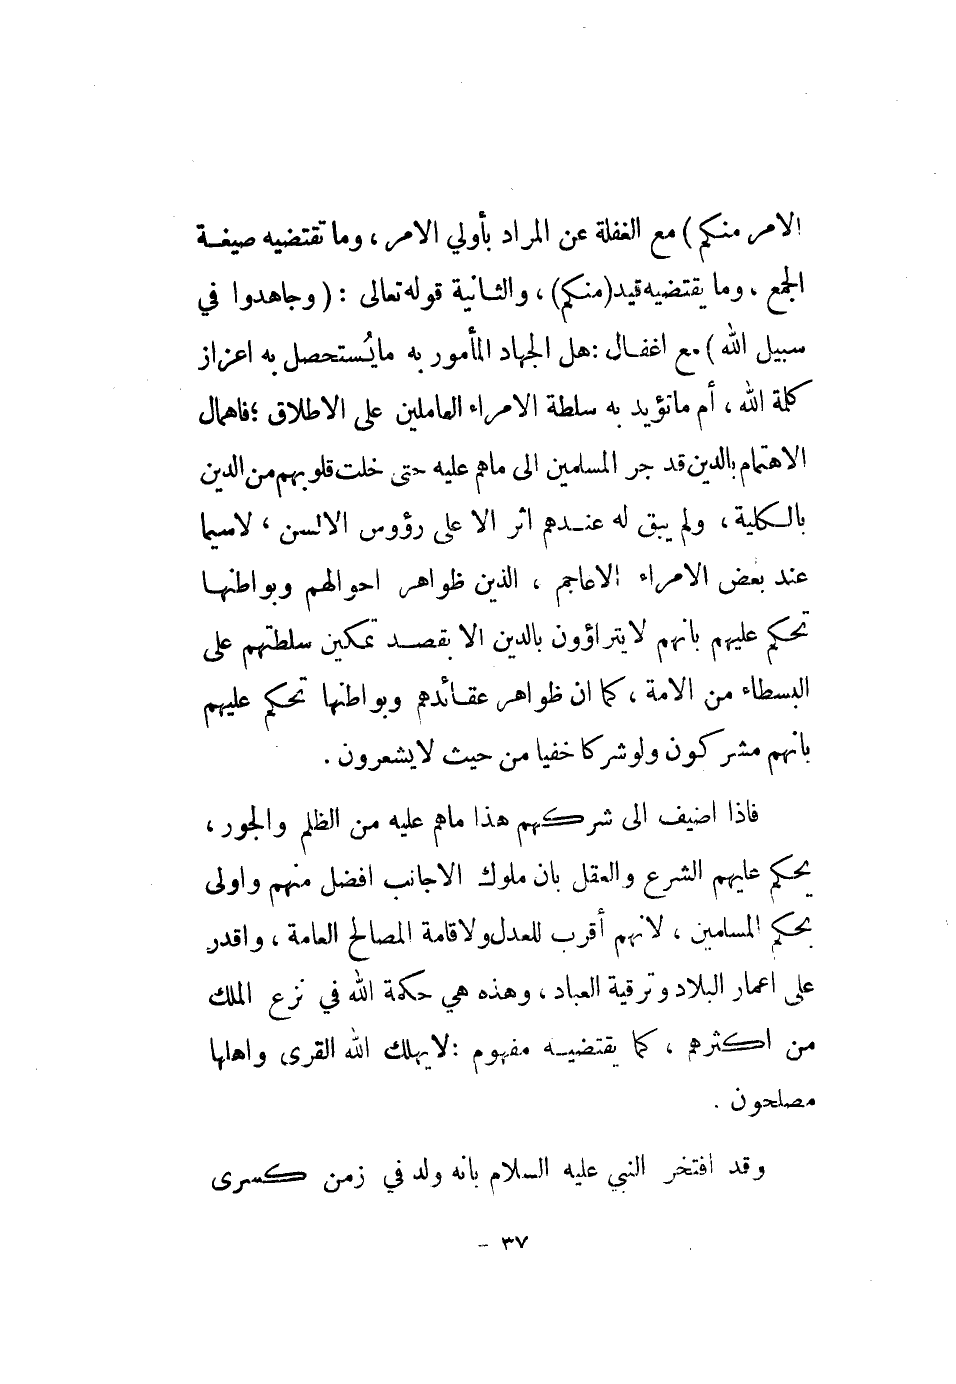 الامر منكم) مع الغفلة عن المراد بأولي الامر ، وما تقتضيه صيغة
الجمع ، وما يقتضيه قيد (منكم) ، والثانية قوله تعالى : (وجاهدوا في
سبيل الله) مع اغفال : هل الجهاد المأمور به مايُستحصل به اعزاز
كلمة الله ، أم ماتؤيد به سلطة الامراء العاملين على الاطلاق ؛ فاهمال
الاهتمام بالدين قد جر المسلمين الى ماهم عليه حتى خلت قلوبهم من الدين
بالكلية ، ولم يبق له عندهم اثر الا على رؤوس الالسن ، لاسيما
عند بعض الامراء الاعاجم ، الذين ظواهر احوالهم وبواطنها
تحكم عليهم بانهم لايتراؤون بالدين الا بقصد تمكين سلطتهم على
البسطاء من الامة ، كما ان ظواهر عقائدهم وبواطنها تحكم عليهم
بانهم مشركون ولو شركا خفيا من حيث لايشعرون .
فاذا اضيف الى شركهم هذا ماهم عليه من الظلم والجور ،
يحكم عليهم الشرع والعقل بان ملوك الاجانب افضل منهم واولى
بحكم المسلمين ، لانهم أقرب للعدل ولاقامة المصالح العامة ، واقدر
على اعمار البلاد وترقية العباد ، وهذه هي حكمة الله في نزع الملك
من اكثرهم ، كما يقتضيه مفهوم : لايهلك الله القرى واهلها
مصلحون .
وقد افتخر النبي عليه السلام بانه ولد في زمن كسرى
٣٧ -